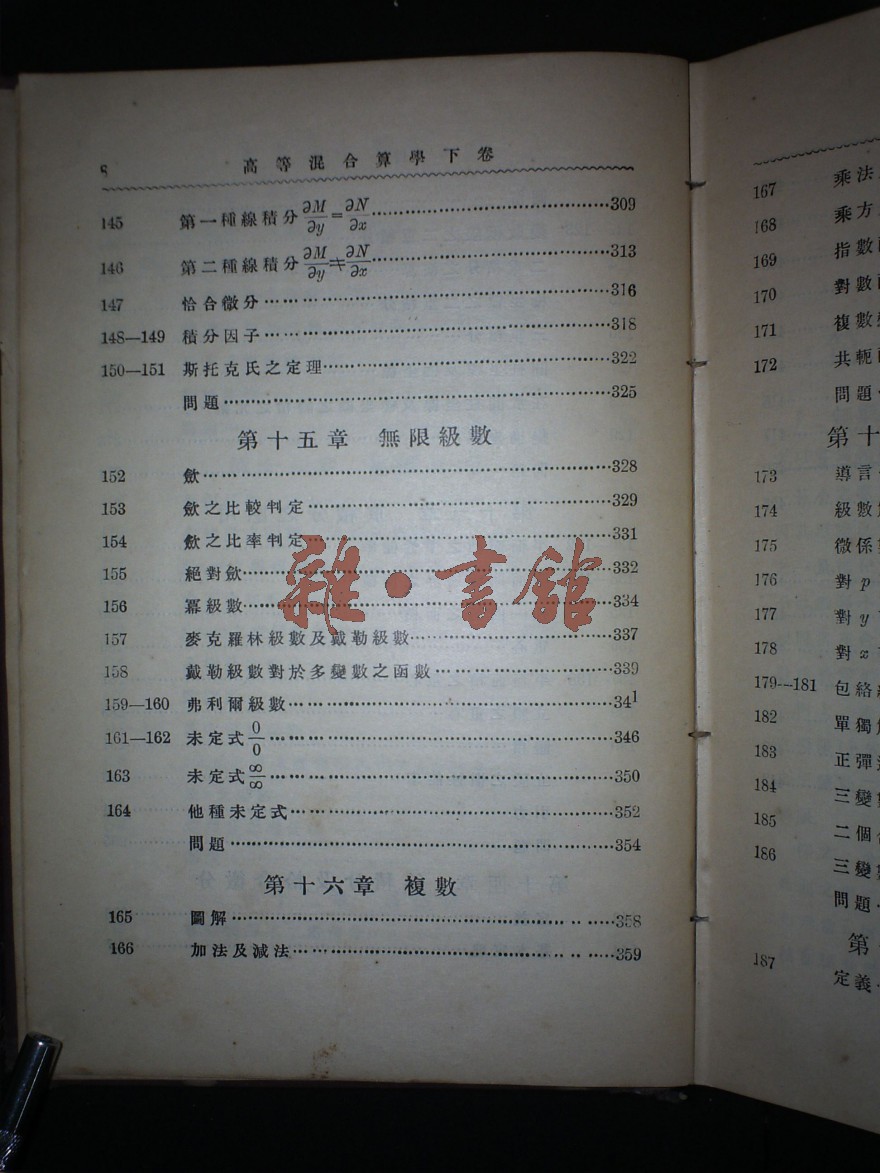 8 高等混合算學下卷
145 第一種線積分 ∂M/∂y = ∂N/∂x ……309
146 第二種線積分 ∂M/∂y ≠ ∂N/∂x ……313
147 恰合微分……316
148—149 積分因子……318
150—151 斯托克氏之定理……322
問題……325
第十五章 無限級數
152 斂……328
153 斂之比較判定……329
154 斂之比率判定……331
155 絕對斂……332
156 冪級數……334
157 麥克羅林級數及戴勒級數……337
158 戴勒級數對於多變數之函數……339
159—160 弗利爾級數……341
161—162 未定式 0/0 ……346
163 未定式 ∞/∞ ……350
164 他種未定式……352
問題……354
第十六章 複數
165 圖解……358
166 加法及減法……359
雜·書館
167 乘法
168 乘方
169 指數
170 對數
171 複數
172 共軛
問題
第十
173 導言
174 級數
175 微係
176 對 p
177 對 y
178 對 x
179—181 包絡
182 單獨
183 正彈
184 三變
185 二個
186 三變
問題
第
187 定義